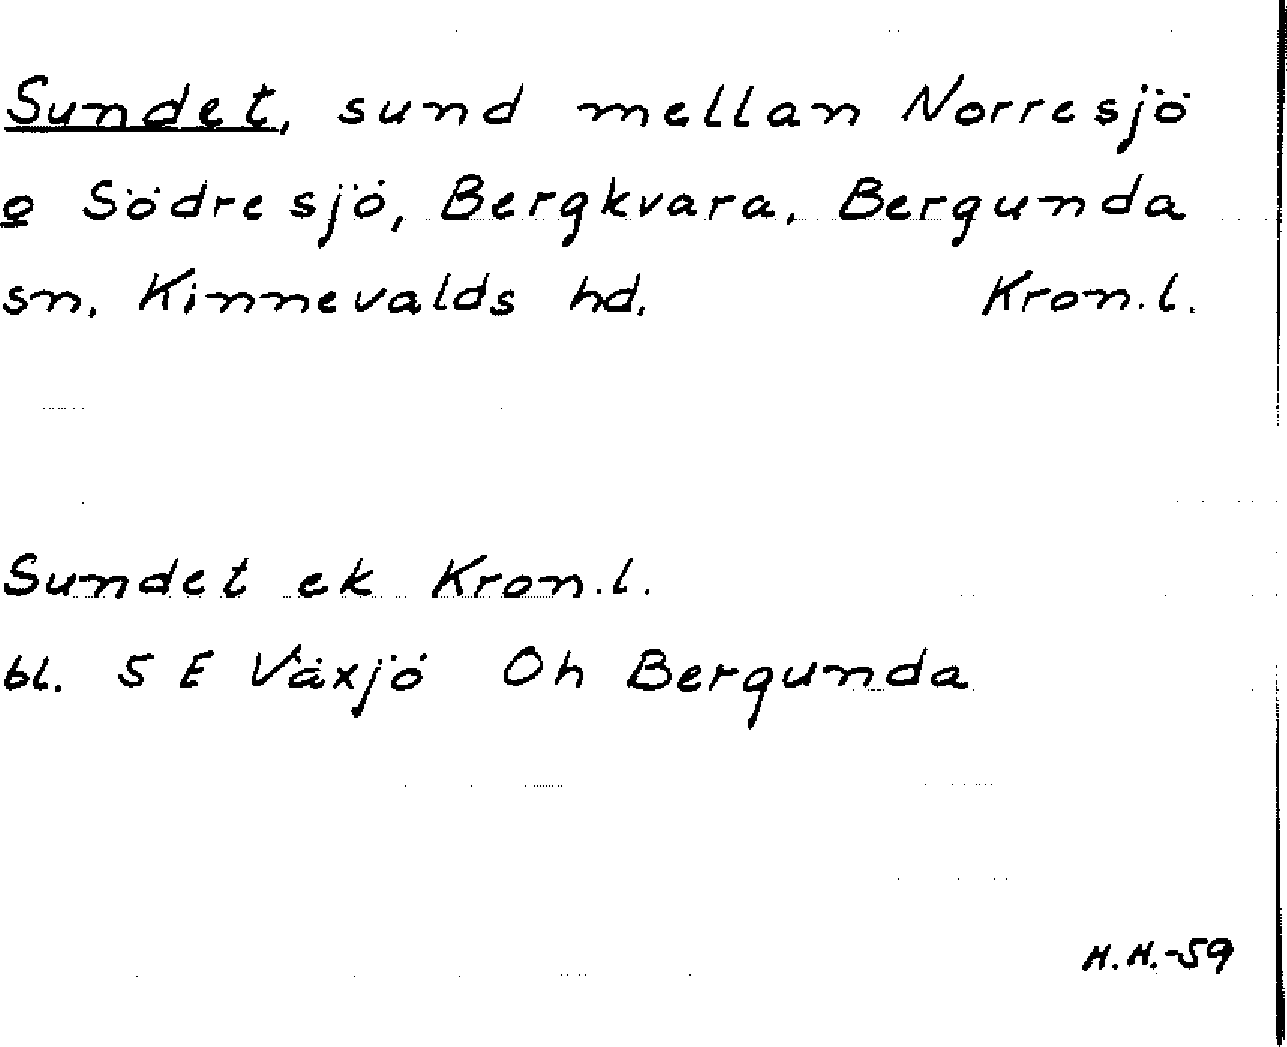 Sundet, sund mellan Norresjö
o Södresjö, Bergkvara, Bergunda
sn, Kinnevalds hd. Kron.l.
Sundet ek Kron.l.
bl. 5 E Växjö Oh Bergunda
H.H.-59